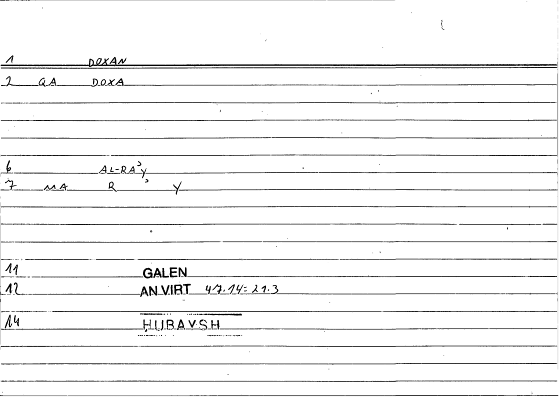 1 DOXAN
2 QA DOXA
6 AL-RAʾY
7 MA R ʾ Y
11 GALEN
12 AN.VIRT 47.14=21.3
14 HUBAYSH